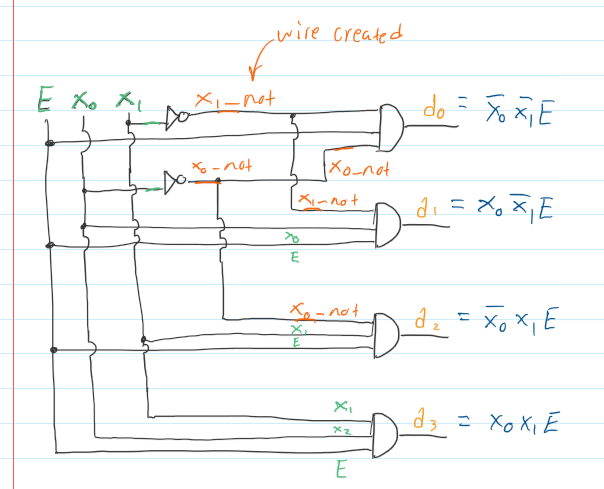 wire created
E x₀ x₁
x₁_not
d₀ = x̄₀ x̄₁ E
x₀_not
x₀_not
x₁_not
d₁ = x₀ x̄₁ E
x₀
E
x₀_not
d₂ = x̄₀ x₁ E
x₁
E
x₁
d₃ = x₀ x₁ E
x₂
E